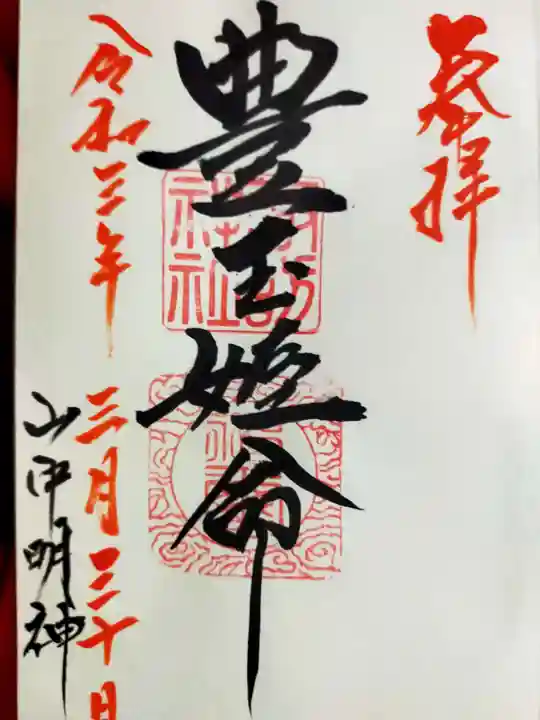 奉拝
豊玉姫命
諏訪神社
令和三年
三月三十日
山中明神